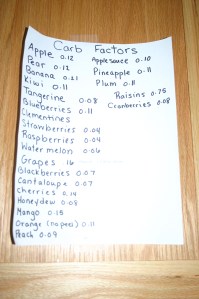 Carb Factors
Apple 0.12
Pear 0.12
Banana 0.21
Kiwi 0.11
Tangerine 0.08
Blueberries 0.11
Clementines
Strawberries 0.04
Raspberries 0.04
Watermelon 0.06
Grapes 16
Blackberries 0.07
Cantaloupe 0.07
Cherries 0.14
Honeydew 0.08
Mango 0.15
Orange (no peel) 0.11
Peach 0.09
Applesauce 0.10
Pineapple 0.11
Plum 0.11
Raisins 0.75
Cranberries 0.08